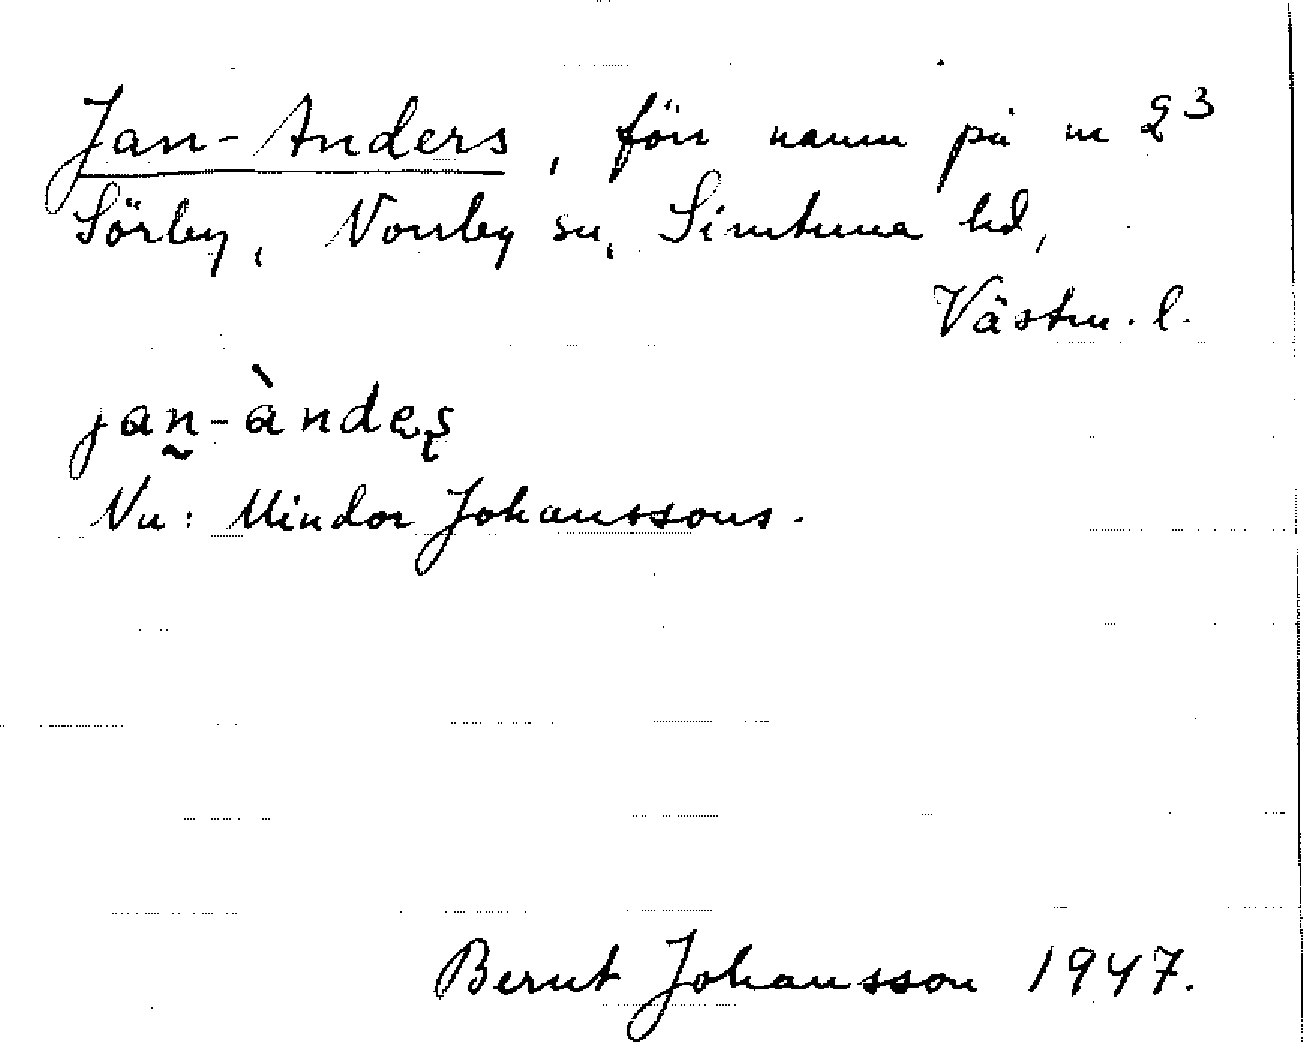 Jan-Anders, förr namn på nr 2³
Sörby, Norrby sn, Simtuna hd,
Västm. l.
jan̰-àndęş
Nu: Mindor Johanssons.
Bernt Johansson 1947.